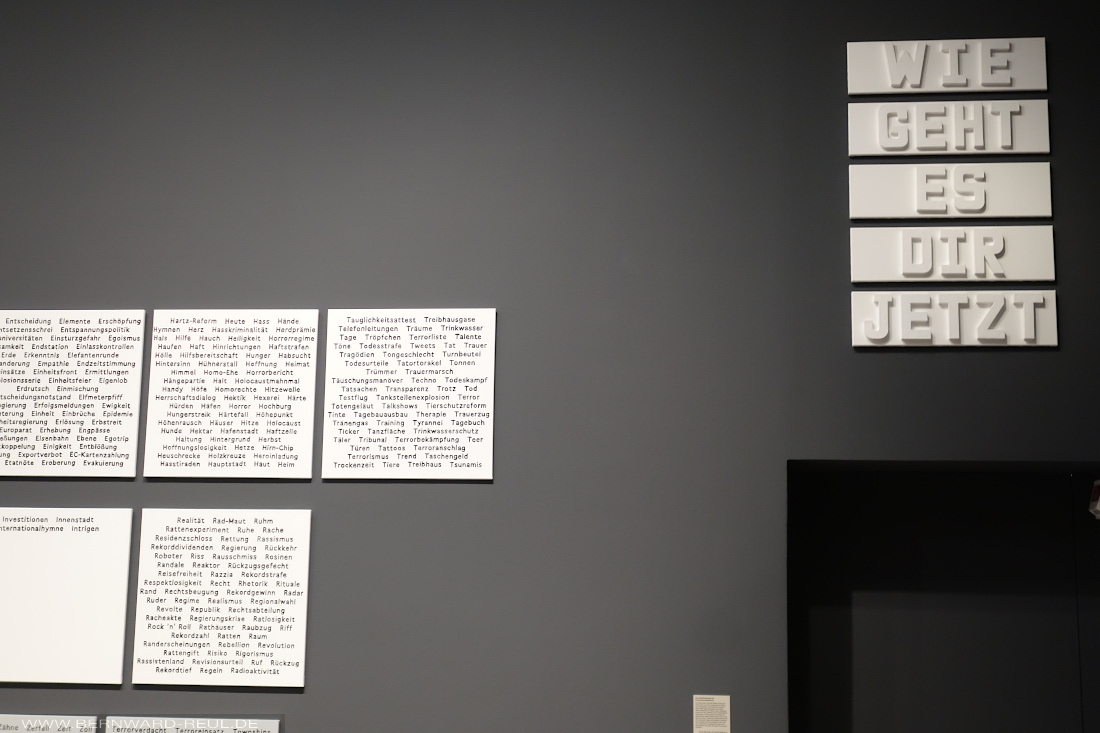 WIE
GEHT
ES
DIR
JETZT
Entscheidung Elemente Erschöpfung
Entspannungspolitik
Einsturzgefahr Egoismus
Endstation Einlasskontrollen
Erde Erkenntnis Elefantenrunde
Empathie Endzeitstimmung
Einheitsfront Ermittlungen
Einheitsfeier Eigenlob
Erdrutsch Einmischung
Elfmeterpfiff
Erfolgsmeldungen Ewigkeit
Einheit Einbrüche Epidemie
Erlösung Erbstreit
Europarat Erhebung Engpässe
Eisenbahn Ebene Egotrip
Einigkeit Entblößung
Exportverbot EC-Kartenzahlung
Etatnöte Eroberung Evakuierung
Hartz-Reform Heute Hass Hände
Hymnen Herz Hasskriminalität Herdprämie
Hals Hilfe Hauch Heiligkeit Horrorregime
Haufen Haft Hinrichtungen Haftstrafen
Hölle Hilfsbereitschaft Hunger Habsucht
Hintersinn Hühnerstall Hoffnung Heimat
Himmel Homo-Ehe Horrorbericht
Hängepartie Halt Holocaustmahnmal
Handy Höfe Homorechte Hitzewelle
Herrschaftsdialog Hektik Hexerei Härte
Hürden Häfen Horror Hochburg
Hungerstreik Härtefall Höhepunkt
Höhenrausch Häuser Hitze Holocaust
Hunde Hektar Hafenstadt Haftzelle
Haltung Hintergrund Herbst
Hoffnungslosigkeit Hetze Hirn-Chip
Heuschrecke Holzkreuze Heroinladung
Hasstiraden Hauptstadt Haut Heim
Tauglichkeitsattest Treibhausgase
Telefonleitungen Träume Trinkwasser
Tage Tröpfchen Terrorliste Talente
Töne Todesstrafe Tweets Tat Trauer
Tragödien Tongeschlecht Turnbeutel
Todesurteile Tatortorakel Tonnen
Trümmer Trauermarsch
Täuschungsmanöver Techno Todeskampf
Tatsachen Transparenz Trotz Tod
Testflug Tankstellenexplosion Terror
Totengeläut Talkshows Tierschutzreform
Tinte Tagebauausbau Therapie Trauerzug
Tränengas Training Tyrannei Tagebuch
Ticker Tanzfläche Trinkwasserschutz
Täler Tribunal Terrorbekämpfung Teer
Türen Tattoos Terroranschlag
Terrorismus Trend Taschengeld
Trockenzeit Tiere Treibhaus Tsunamis
Investitionen Innenstadt
Intrigen
Realität Rad-Maut Ruhm
Rattenexperiment Ruhe Rache
Residenzschloss Rettung Rassismus
Rekorddividenden Regierung Rückkehr
Roboter Riss Rausschmiss Rosinen
Randale Reaktor Rückzugsgefecht
Reisefreiheit Razzia Rekordstrafe
Respektlosigkeit Recht Rhetorik Rituale
Rand Rechtsbeugung Rekordgewinn Radar
Ruder Regime Realismus Regionalwahl
Revolte Republik Rechtsabteilung
Racheakte Regierungskrise Ratlosigkeit
Rock 'n' Roll Rathäuser Raubzug Riff
Rekordzahl Ratten Raum
Randerscheinungen Rebellion Revolution
Rattengift Risiko Rigorismus
Rassistenland Revisionsurteil Ruf Rückzug
Rekordtief Regeln Radioaktivität
Zerfall Zeit
Terrorverdacht Terroreinsatz Townships
WWW.BERNWARD-REUL.DE